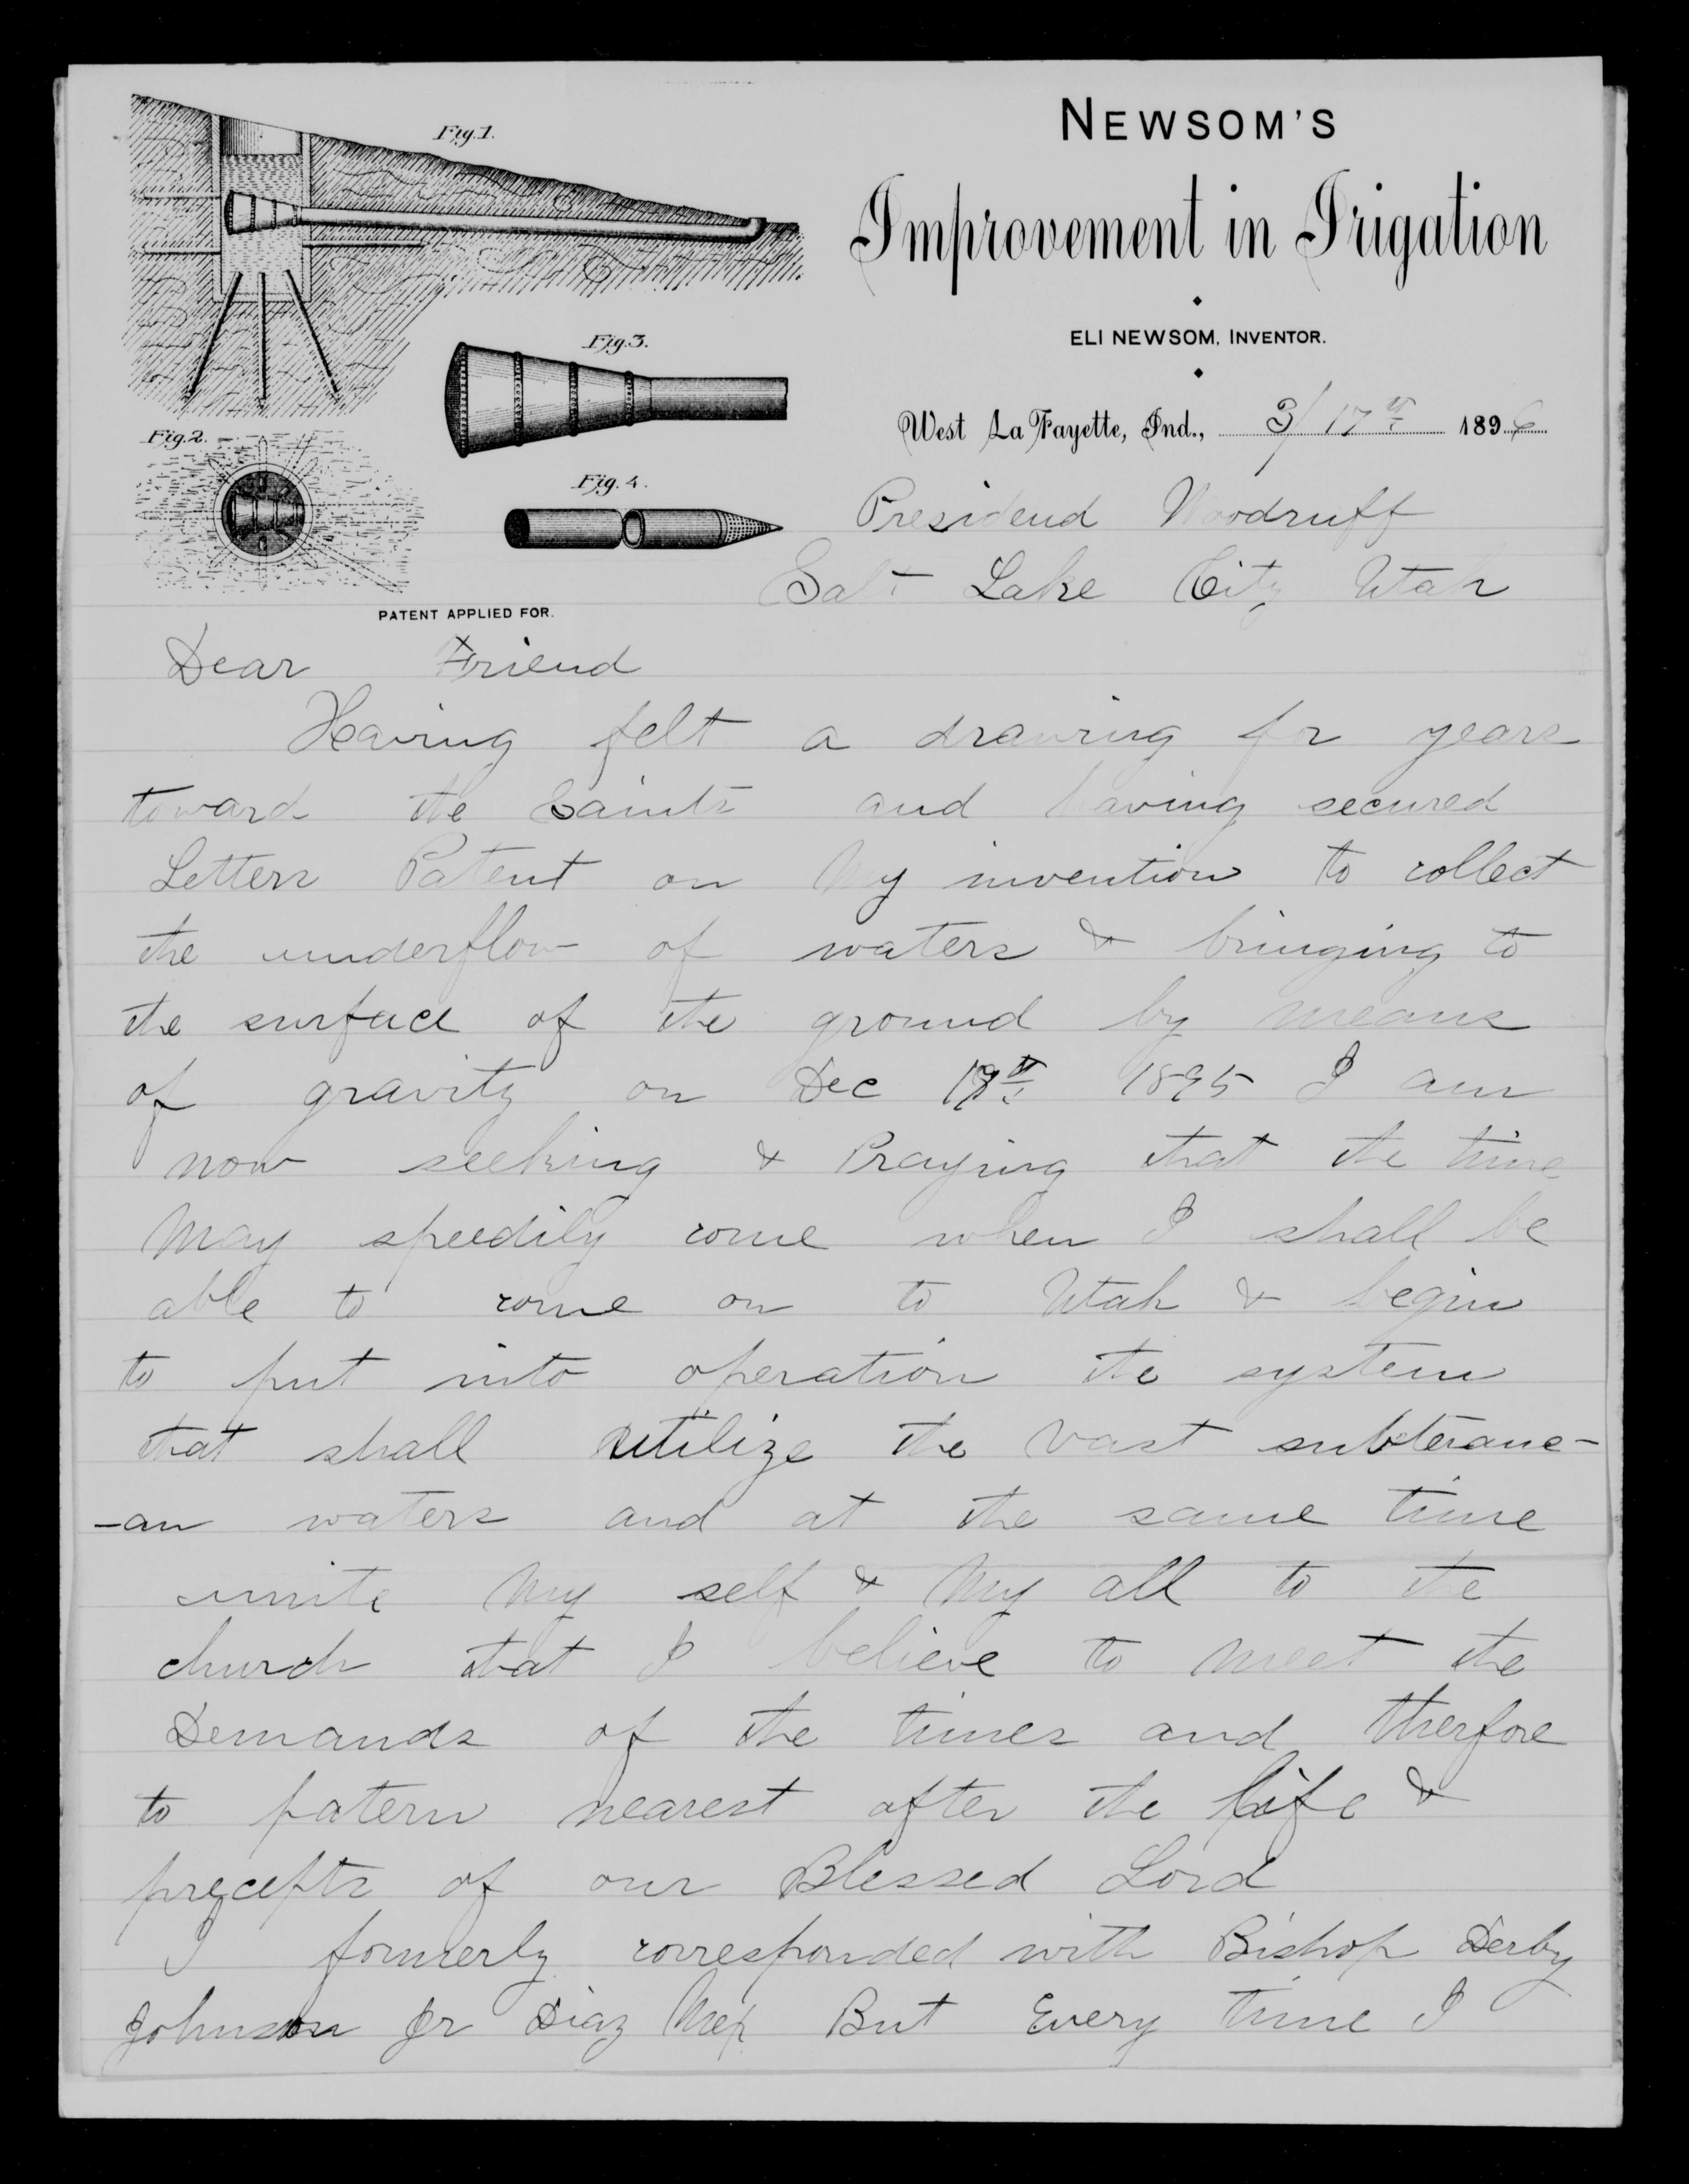 Fig.1.
NEWSOM'S
Improvement in Irigation
ELI NEWSOM, INVENTOR.
Fig.3.
West La Fayette, Ind., 3/17th 1896
Fig.2.
Fig.4.
Presidend Woodruff
Salt Lake City Utah
PATENT APPLIED FOR.
Dear Friend
Having felt a drawing for years
toward the Saints and having secured
Letters Patent on My invention to collect
the underflow of waters & bringing to
the surface of the ground by means
of gravity on Dec 1895 I am
now seeking & Praying that the time
May speedily come when I shall be
able to come on to Utah & begin
to put into operation the system
that shall utilize the vast subterane-
-an waters and at the same time
unite My self & My all to the
church that I believe to meet the
Demands of the times and therfore
to patern nearest after the life &
precepts of our Blessed Lord
I formerly corresponded with Bishop Derby
Johnson Jr Diaz Mex But Every time I